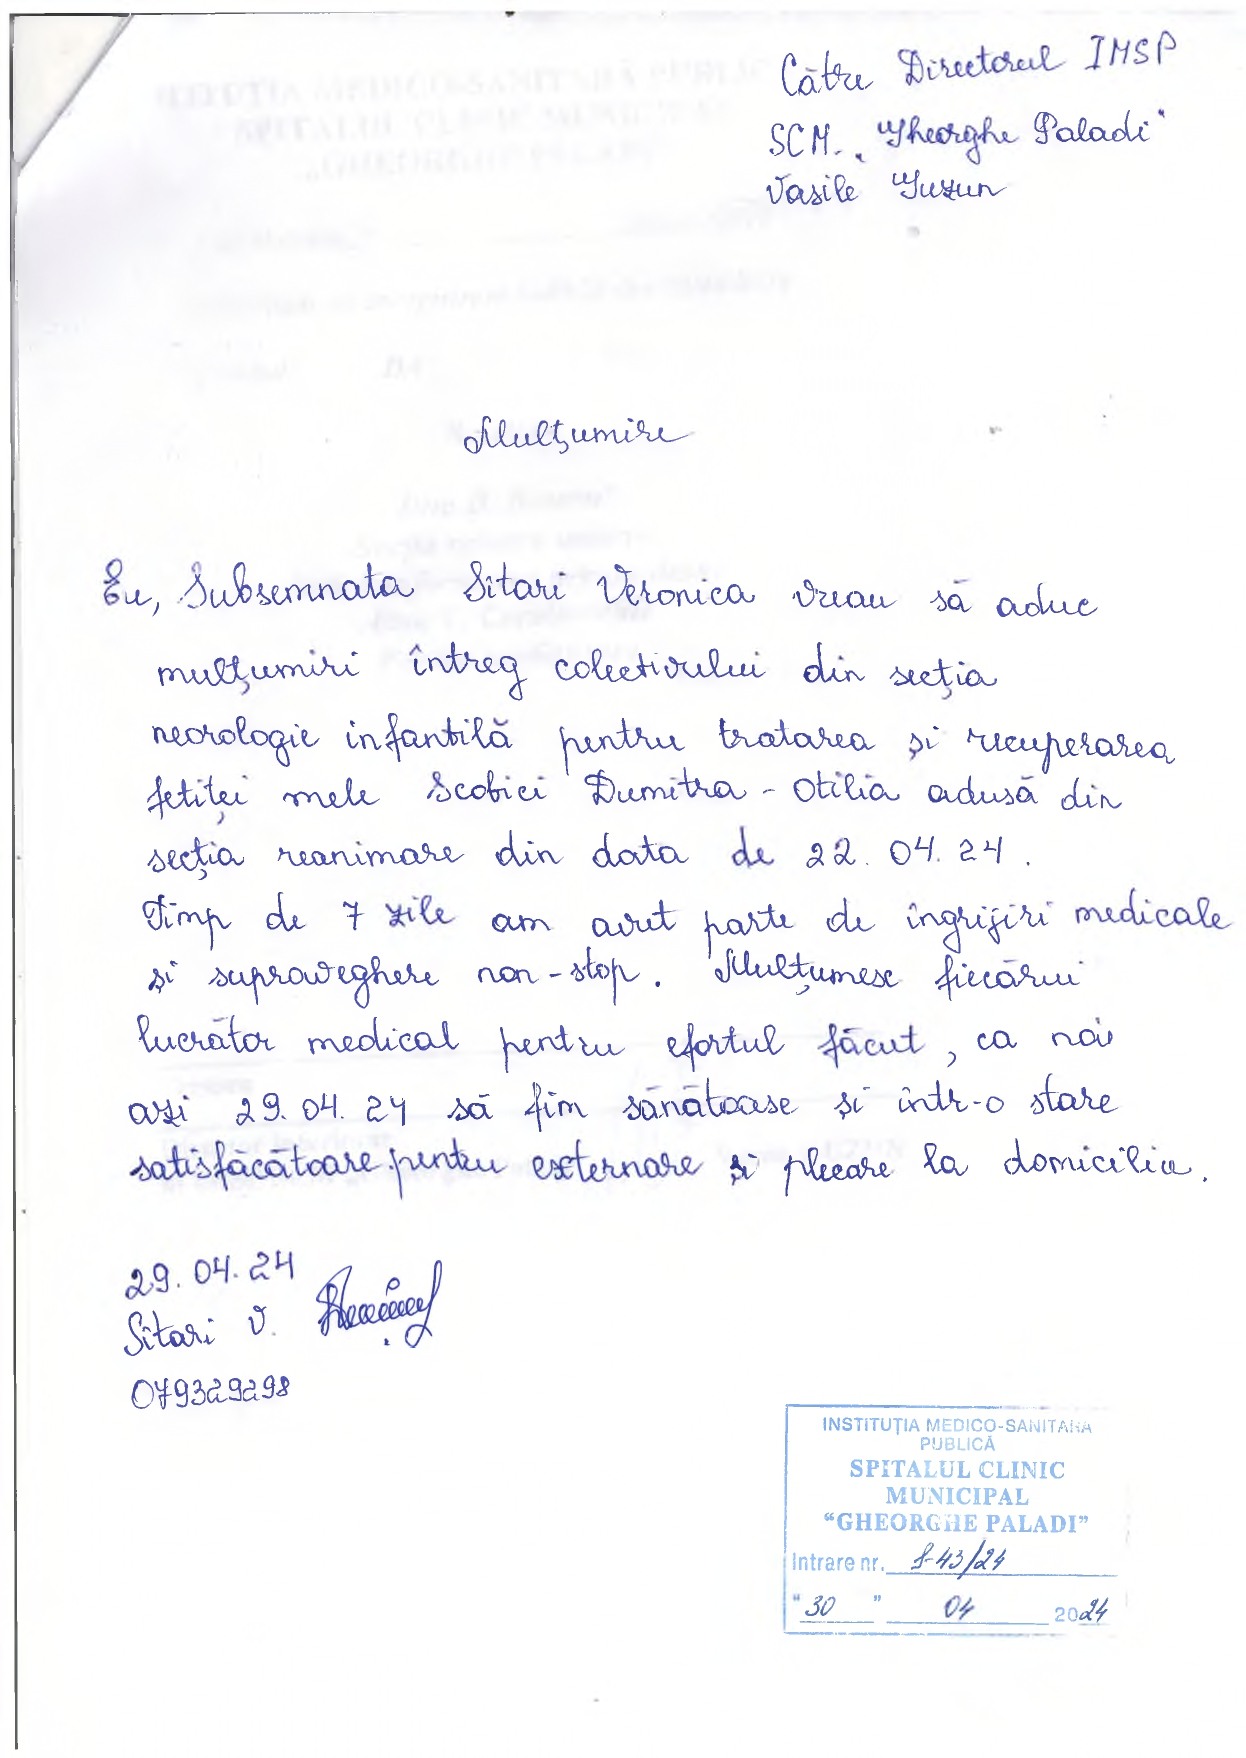 Către Directorul IMSP
SCM. "Gheorghe Paladi"
Vasile Guzun
Mulțumire
Eu, Subsemnata Sitari Veronica vreau să aduc
mulțumiri întreg colectivului din secția
neorologie infantilă pentru tratarea și recuperarea
fetiței mele Scobici Dumitra - Otilia adusă din
secția reanimare din data de 22.04.24.
Timp de 7 zile am avut parte de îngrijiri medicale
și supraveghere non-stop. Mulțumesc fiecărui
lucrător medical pentru efortul făcut, ca noi
azi 29.04.24 să fim sănătoase și într-o stare
satisfăcătoare pentru externare și plecare la domiciliu.
29.04.24
Sitari V.
079329298
INSTITUȚIA MEDICO-SANITARĂ
PUBLICĂ
SPITALUL CLINIC
MUNICIPAL
"GHEORGHE PALADI"
Intrare nr. 43/24
"30" 04 2024